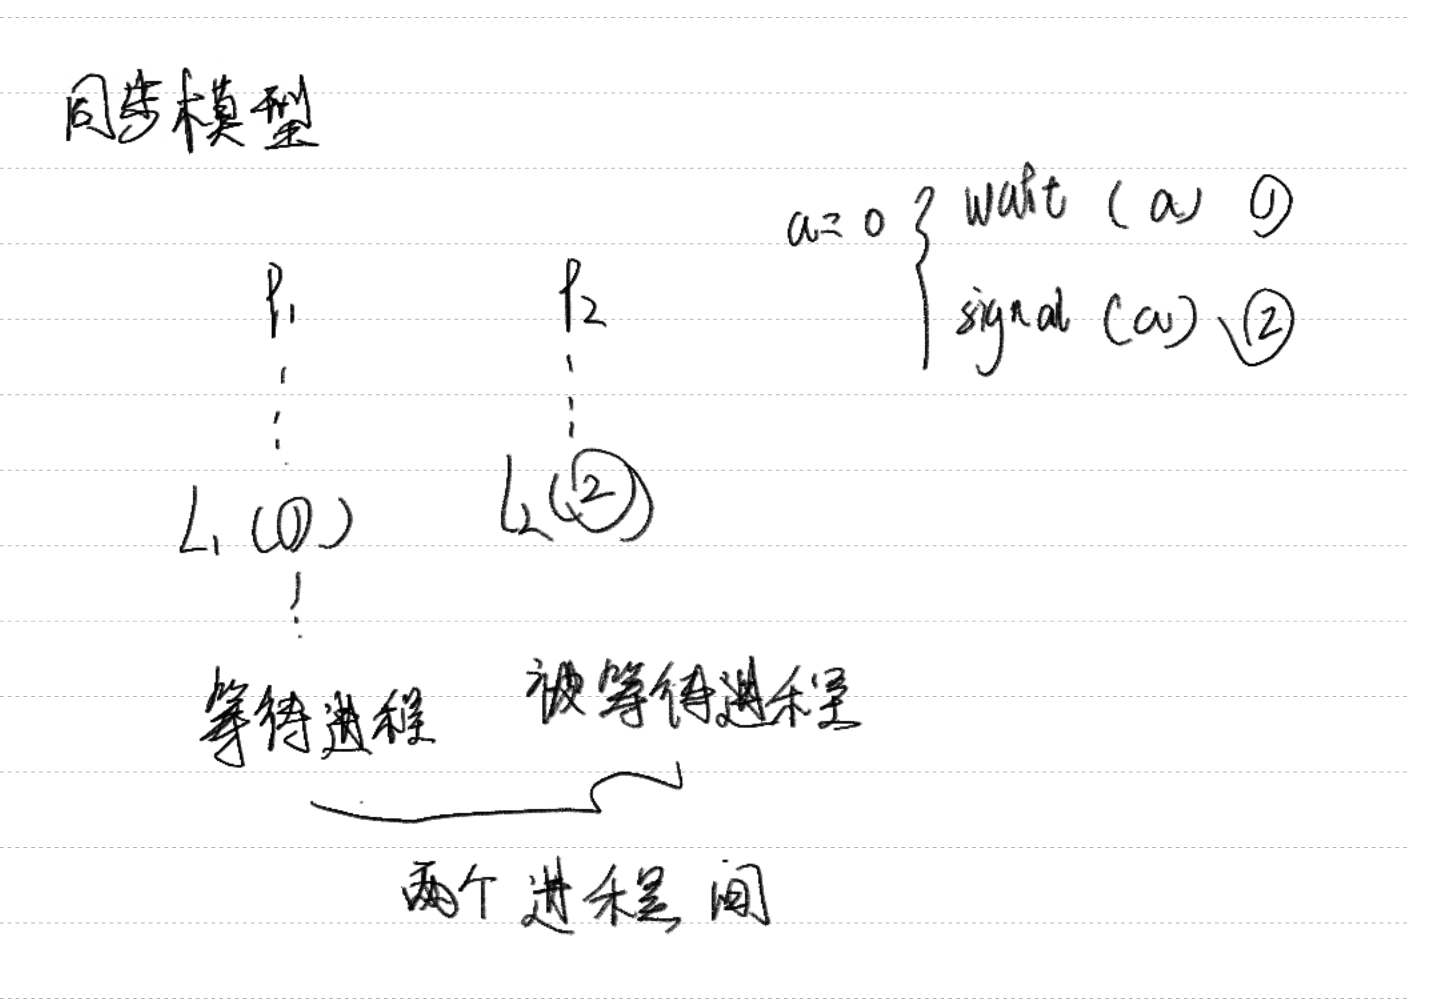 同步模型
a=0 { wait (a) ①
signal (a) ②
P₁ P₂
L₁ (①) L₂ (②)
等待进程 被等待进程
两个进程间